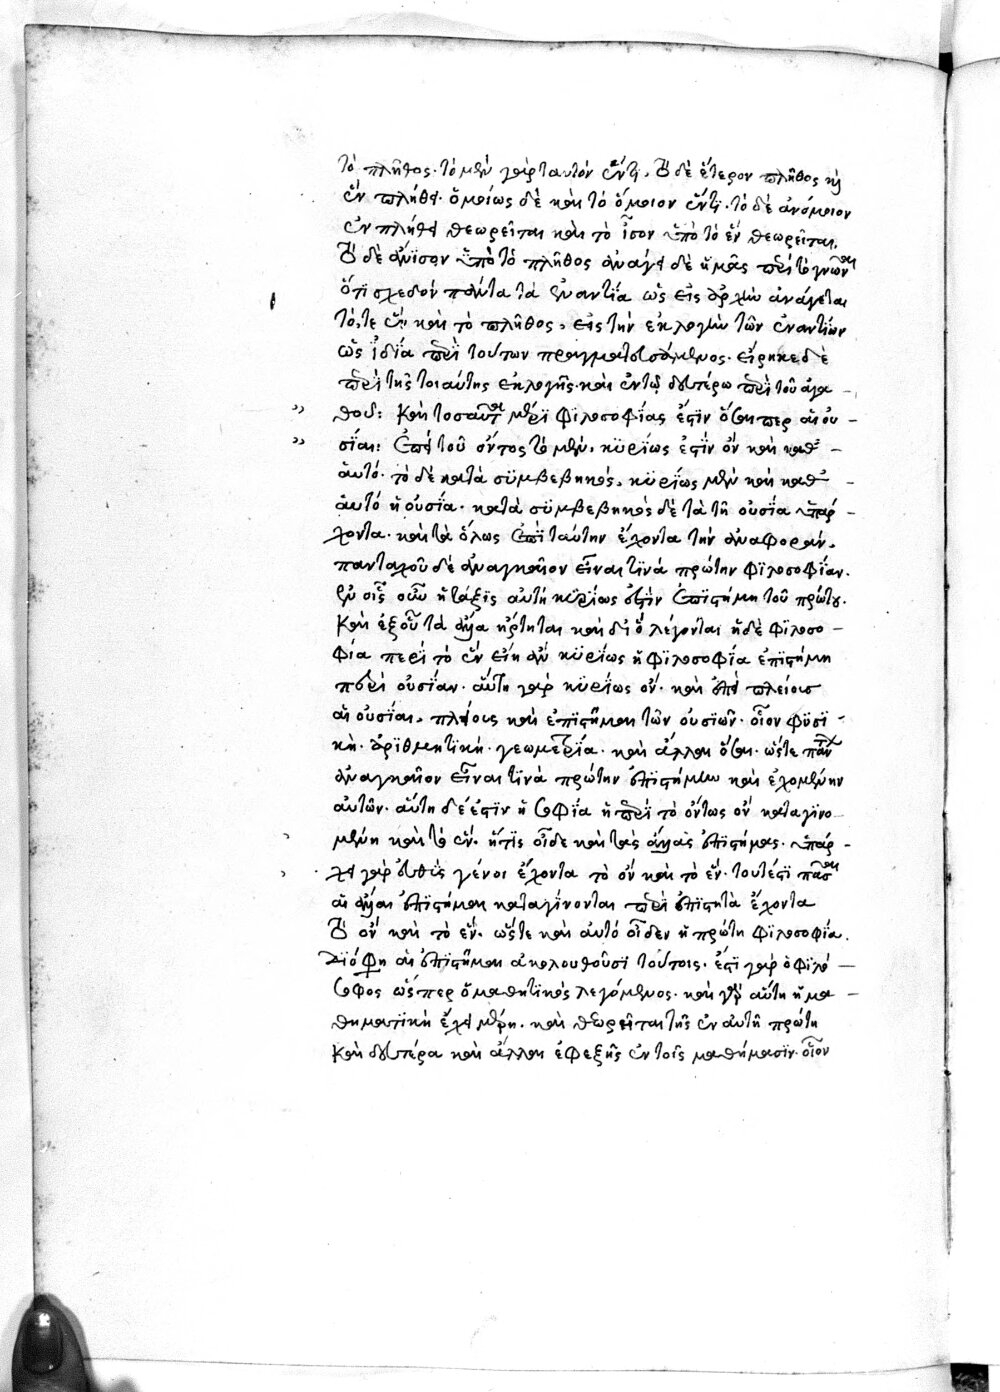 τὸ πλῆθος· τὸ μὲν γὰρ ταυτὸν ἕν τι. τὸ δὲ ἕτερον πλῆθος ἢ
ἐν πλήθει· ὁμοίως δὲ καὶ τὸ ὅμοιον ἕν τι· τὸ δὲ ἀνόμοιον
ἐν πλήθει θεωρεῖται καὶ τὸ ἴσον ὑπὸ τὸ ἓν θεωρεῖται.
τὸ δὲ ἄνισον ὑπὸ τὸ πλῆθος ἀνάγει δὲ ἡμᾶς περὶ τὸ γνῶναι
ὅτι σχεδὸν πάντα τὰ ἐναντία ὡς εἰς ἀρχὴν ἀνάγεται
τό, τε ἓν καὶ τὸ πλῆθος, εἰς τὴν ἐκλογὴν τῶν ἐναντίων
ὡς ἰδία περὶ τούτων πραγματευσάμενος· εἴρηκε δὲ
περὶ τῆς τοιαύτης ἐκλογῆς· καὶ ἐν τῷ δευτέρω περὶ τοῦ ἀγα-
θοῦ: Καὶ τοσαῦτα μέρη φιλοσοφίας ἐστὶν ὅσαι περ αἱ οὐ-
σίαι: Ἐπεὶ τοῦ ὄντος τὸ μὲν, κυρίως ἐστὶν ὂν καὶ καθ'
αὑτό· τὸ δὲ κατὰ συμβεβηκός, κυρίως μὲν καὶ καθ'
αὑτὸ ἡ οὐσία· κατὰ συμβεβηκὸς δὲ τὰ τῆ οὐσία ὑπάρ-
χοντα· καὶ τὰ ὅλως ἐπὶ ταύτην ἔχοντα τὴν ἀναφοράν.
πανταχοῦ δὲ ἀναγκαῖον εἶναί τινα πρώτην φιλοσοφίαν.
ἐν οἷς οὖν ἡ τάξις αὐτὴ κυρίως ἐστὶν ἐπιστήμη τοῦ πρώτου.
Καὶ ἐξ οὗ τὰ ἄλλα ἤρτηται καὶ δι' ὃ λέγονται ἡ δὲ φιλοσο-
φία περὶ τὸ ὂν εἴη ἂν κυρίως ἡ φιλοσοφία ἐπιστήμη
περὶ οὐσίαν· αὕτη γὰρ κυρίως ὄν· καὶ ἐπεὶ πλείους
αἱ οὐσίαι, πλείους καὶ ἐπιστῆμαι τῶν οὐσιῶν· οἷον φυσι-
κή· ἀριθμητική· γεωμετρία· καὶ ἄλλαι ὅσαι· ὥστε πάντων
ἀναγκαῖον εἶναί τινα πρώτην ἐπιστήμην καὶ ἐχομένην
αὐτῶν· αὕτη δέ ἐστιν ἡ σοφία ἡ περὶ τὸ ὄντως ὂν καταγινο-
μένη καὶ τὸ ἕν· ἥτις οἶδε καὶ τὰς ἄλλας ἐπιστήμας· ὑπάρ-
χει γὰρ εὐθὺς γένει ἔχοντα τὸ ὂν καὶ τὸ ἕν· τουτέστι πᾶσαι
αἱ ἄλλαι ἐπιστῆμαι καταγίνονται περὶ ἐπιστητὰ ἔχοντα
τὸ ὂν καὶ τὸ ἕν· ὥστε καὶ αὐτὸ οἶδεν ἡ πρώτη φιλοσοφία.
Διό φησι αἱ ἐπιστῆμαι ἀκολουθοῦσι τούτοις· ἔστι γὰρ ὁ φιλό-
σοφος ὥσπερ ὁ μαθητικὸς λεγόμενος· καὶ γὰρ αὕτη ἡ μα-
θηματικὴ ἔχει μέρη· καὶ θεωρεῖται τῆς ἐν αὐτῆ πρώτη
Καὶ δευτέρα καὶ ἄλλαι ἐφεξῆς ἐν τοῖς μαθήμασιν· οἷον